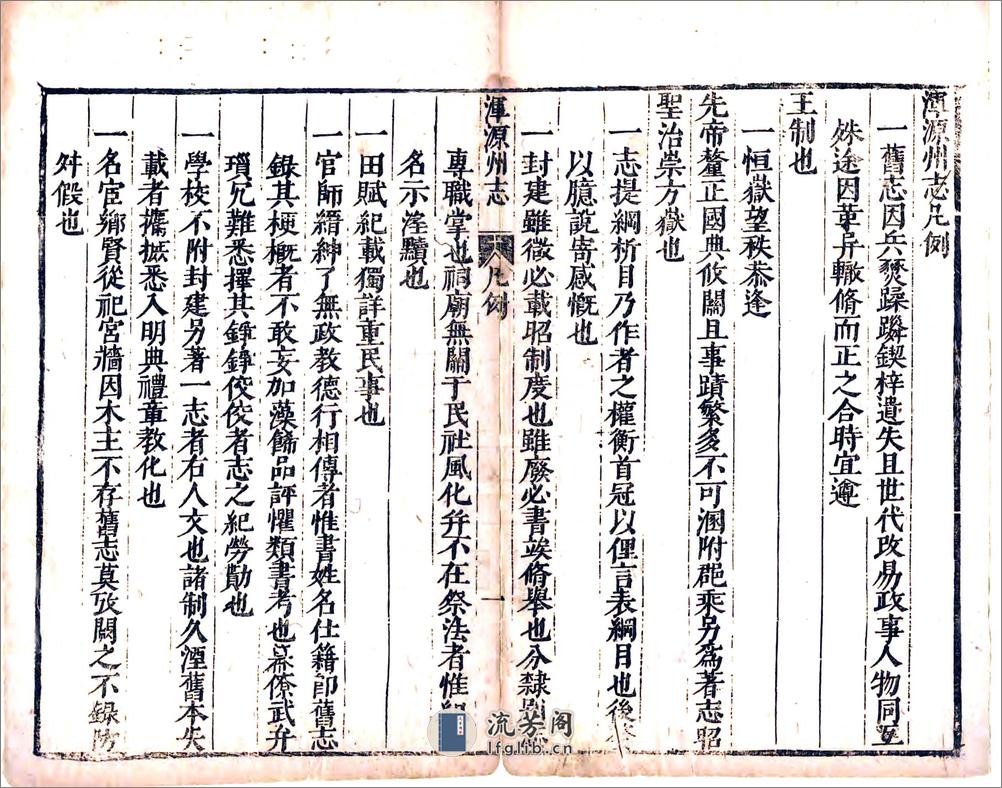 渾源州志凡例
一舊志因兵燹蹂躪鍥梓遺失且世代改易政事人物同
殊途因革斤轍脩而正之合時宜遵
王制也
一恒嶽望秩恭逢
先帝釐正國典攸關且事蹟繁多不可溷附郡乘另為著志昭
聖治崇方嶽也
一志提綱析目乃作者之權衡首冠以俚言表綱目也後
以臆說寄感慨也
一封建雖微必載昭制度也雖廢必書俟脩舉也分隸
渾源州志 凡例 一
專職掌也祠廟無關于民社風化并不在祭法者惟
名示淫黷也
一田賦紀載獨詳重民事也
一官師縉紳了無政教德行相傳者惟書姓名仕籍即舊志
錄其梗概者不敢妄加藻飾品評懼類書考也幕僚武弁
瑣冗難悉擇其錚錚佼佼者志之紀勞勩也
一學校不附封建另著一志者右人文也諸制久湮舊本失
載者攟摭悉入明典禮童教化也
一名宦鄉賢從祀宮牆因木主不存舊志莫攷闕之不錄防
舛假也
流芳阁
lfglib.cn